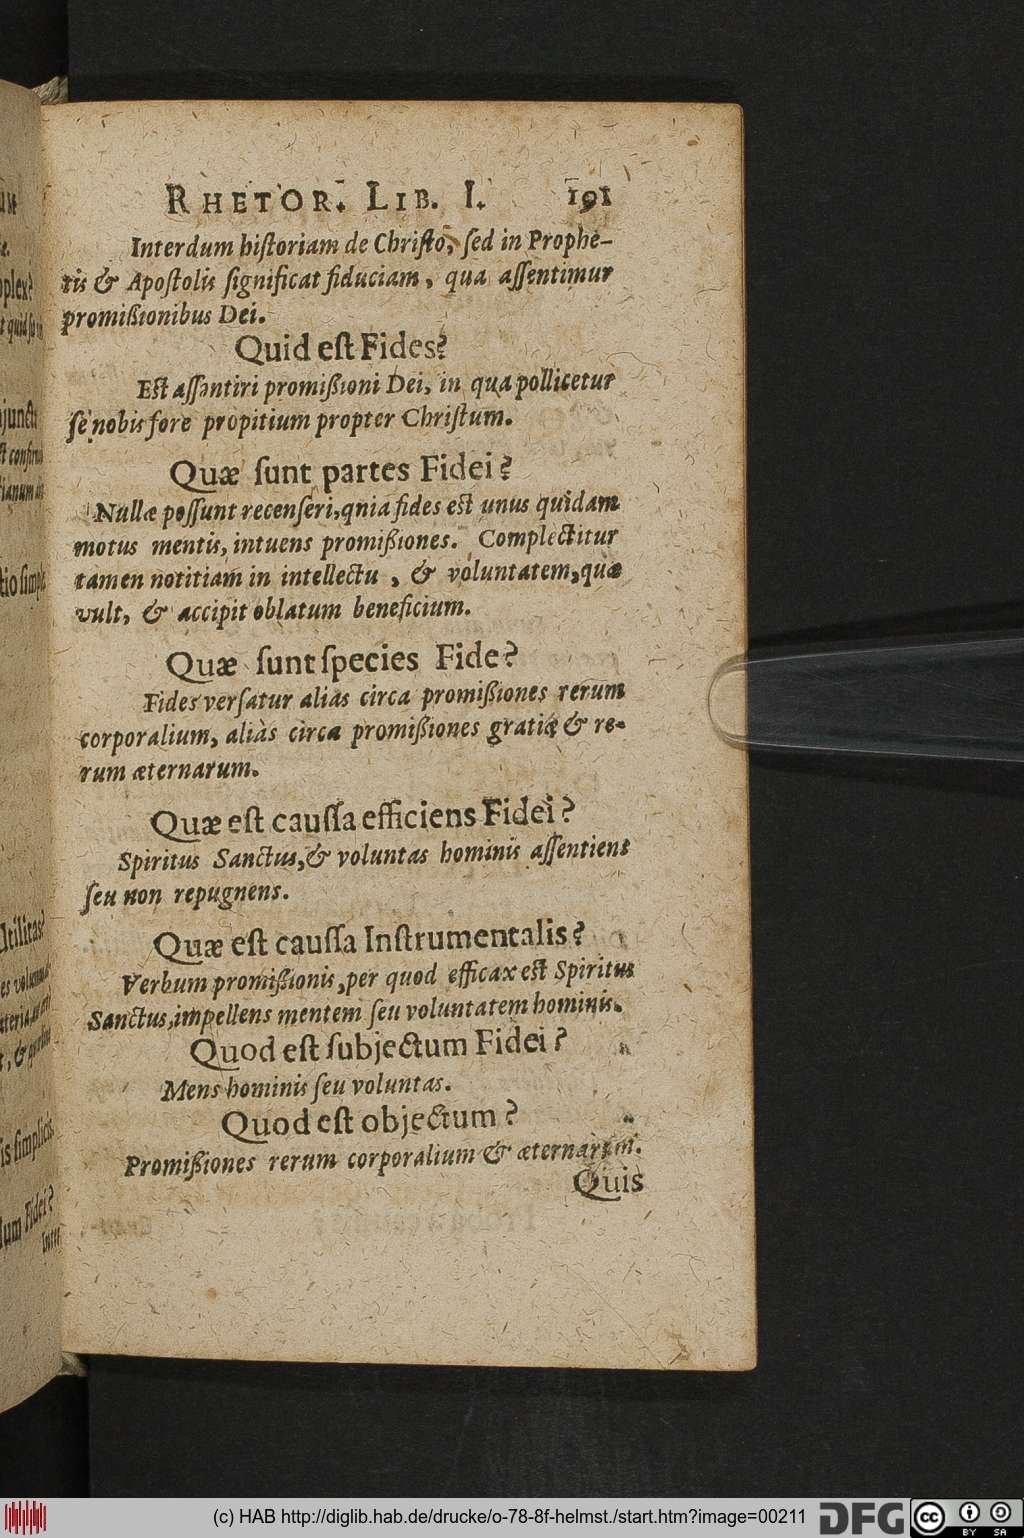 RHETOR. LIB. I. 191
Interdum hiſtoriam de Chriſto, ſed in Prophe-
tis & Apoſtolis ſignificat fiduciam, qua aſſentimur
promiſsionibus Dei.
Quid eſt Fides?
Eſt aſſentiri promiſsioni Dei, in qua pollicetur
ſe nobis fore propitium propter Chriſtum.
Quæ ſunt partes Fidei?
Nullæ poſſunt recenſeri, qnia fides eſt unus quidam
motus mentis, intuens promiſsiones. Complectitur
tamen notitiam in intellectu, & voluntatem, quæ
vult, & accipit oblatum beneficium.
Quæ ſunt ſpecies Fide?
Fides verſatur aliàs circa promiſsiones rerum
corporalium, aliàs circa promiſsiones gratiæ & re-
rum æternarum.
Quæ eſt cauſſa efficiens Fidei?
Spiritus Sanctus, & voluntas hominis aſſentiens
ſeu non repugnens.
Quæ eſt cauſſa Inſtrumentalis?
Verbum promiſsionis, per quod efficax eſt Spiritus
Sanctus, impellens mentem ſeu voluntatem hominis.
Quod eſt ſubjectum Fidei?
Mens hominis ſeu voluntas.
Quod eſt objectum?
Promiſsiones rerum corporalium & æternarum.
Quis
(c) HAB http://diglib.hab.de/drucke/o-78-8f-helmst./start.htm?image=00211
DFG
cc
BY SA